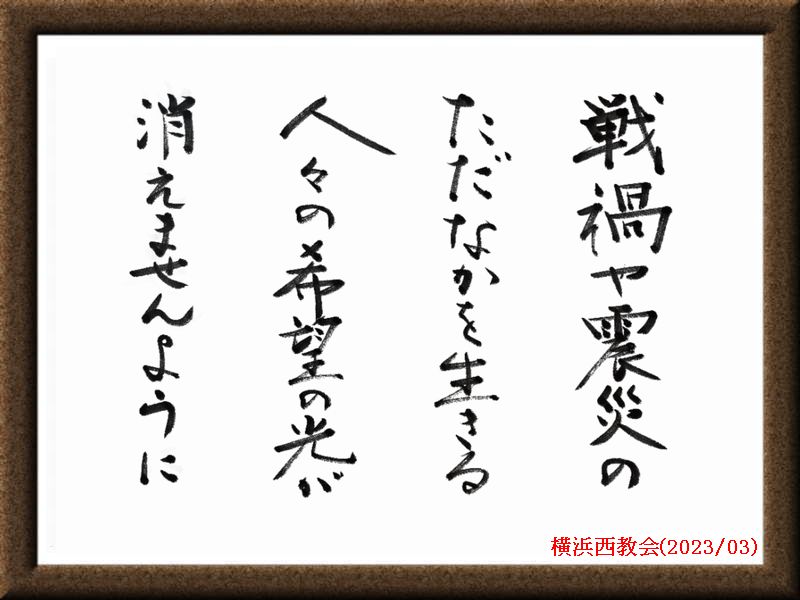 戦禍や震災の
ただなかを生きる
人々の希望の光が
消えませんように
横浜西教会(2023/03)